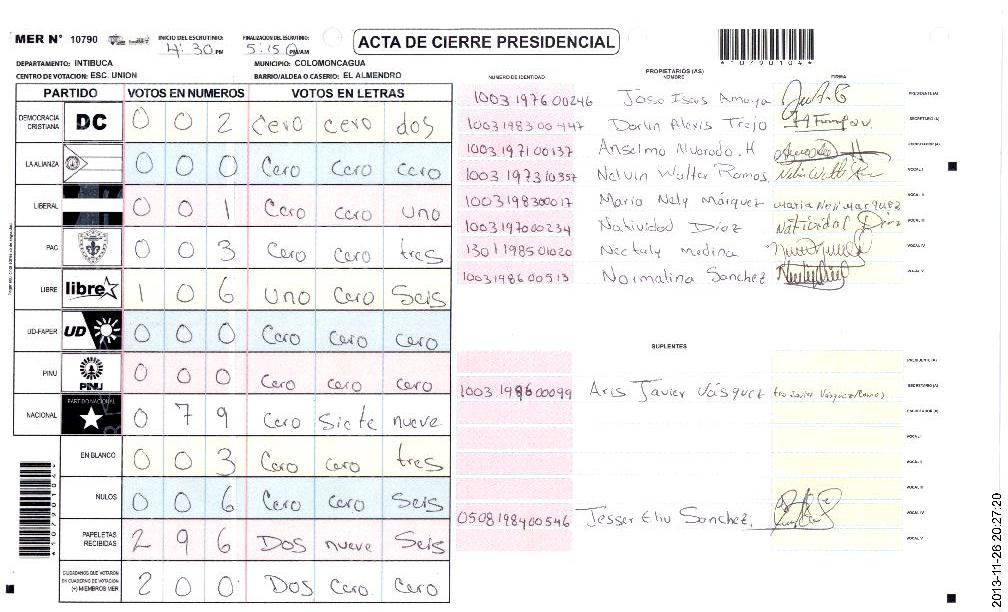 MER N° 10790
INICIO DEL ESCRUTINIO: 4:30 PM
FINALIZACION DEL ESCRUTINIO: 5:15 PM/AM
ACTA DE CIERRE PRESIDENCIAL
* 0 7 9 0 1 0 4 *
DEPARTAMENTO: INTIBUCA
MUNICIPIO: COLOMONCAGUA
CENTRO DE VOTACION: ESC. UNION
BARRIO/ALDEA O CASERIO: EL ALMENDRO
PARTIDO VOTOS EN NUMEROS VOTOS EN LETRAS
DEMOCRACIA CRISTIANA DC 0 0 2 Cero cero dos
LA ALIANZA 0 0 0 Cero Cero cero
LIBERAL 0 0 1 Cero Cero uno
PAC 0 0 3 Cero Cero tres
LIBRE libre 1 0 6 uno Cero Seis
UD-FAPER UD 0 0 0 Cero Cero cero
PINU PINU 0 0 0 Cero cero cero
NACIONAL PARTIDO NACIONAL 0 7 9 Cero Siete nueve
EN BLANCO 0 0 3 Cero cero tres
NULOS 0 0 6 Cero Cero Seis
PAPELETAS RECIBIDAS 2 9 6 Dos nueve Seis
CIUDADANOS QUE VOTARON EN CUADERNO DE VOTACION (+) MIEMBROS MER 2 0 0 Dos Cero Cero
PROPIETARIOS (AS)
NUMERO DE IDENTIDAD NOMBRE FIRMA
1003 1976 00246 Jose Isais Amaya PRESIDENTE (A)
1003 1983 00447 Darlin Alexis Trejo SECRETARIO (A)
1003 1971 00137 Anselmo Alvarado. H
1003 1973 10357 Nelvin Walter Ramos. VOCAL I
1003 1983 00017 Maria Nely Márquez Maria Neli Marquez VOCAL II
1003 1970 00234 Natividad Díaz Natividad Díaz VOCAL III
1301 1985 01020 Nectaly medina VOCAL IV
1003 1986 00513 Normalina Sanchez VOCAL V
SUPLENTES
PRESIDENTE (A)
1003 1986 00099 Aris Javier Vásquez SECRETARIO (A)
ESCRUTADOR (A)
VOCAL I
VOCAL II
VOCAL III
0508 1984 00546 Jesser Eliu Sanchez. VOCAL IV
VOCAL V
2013-11-26 20:27:20